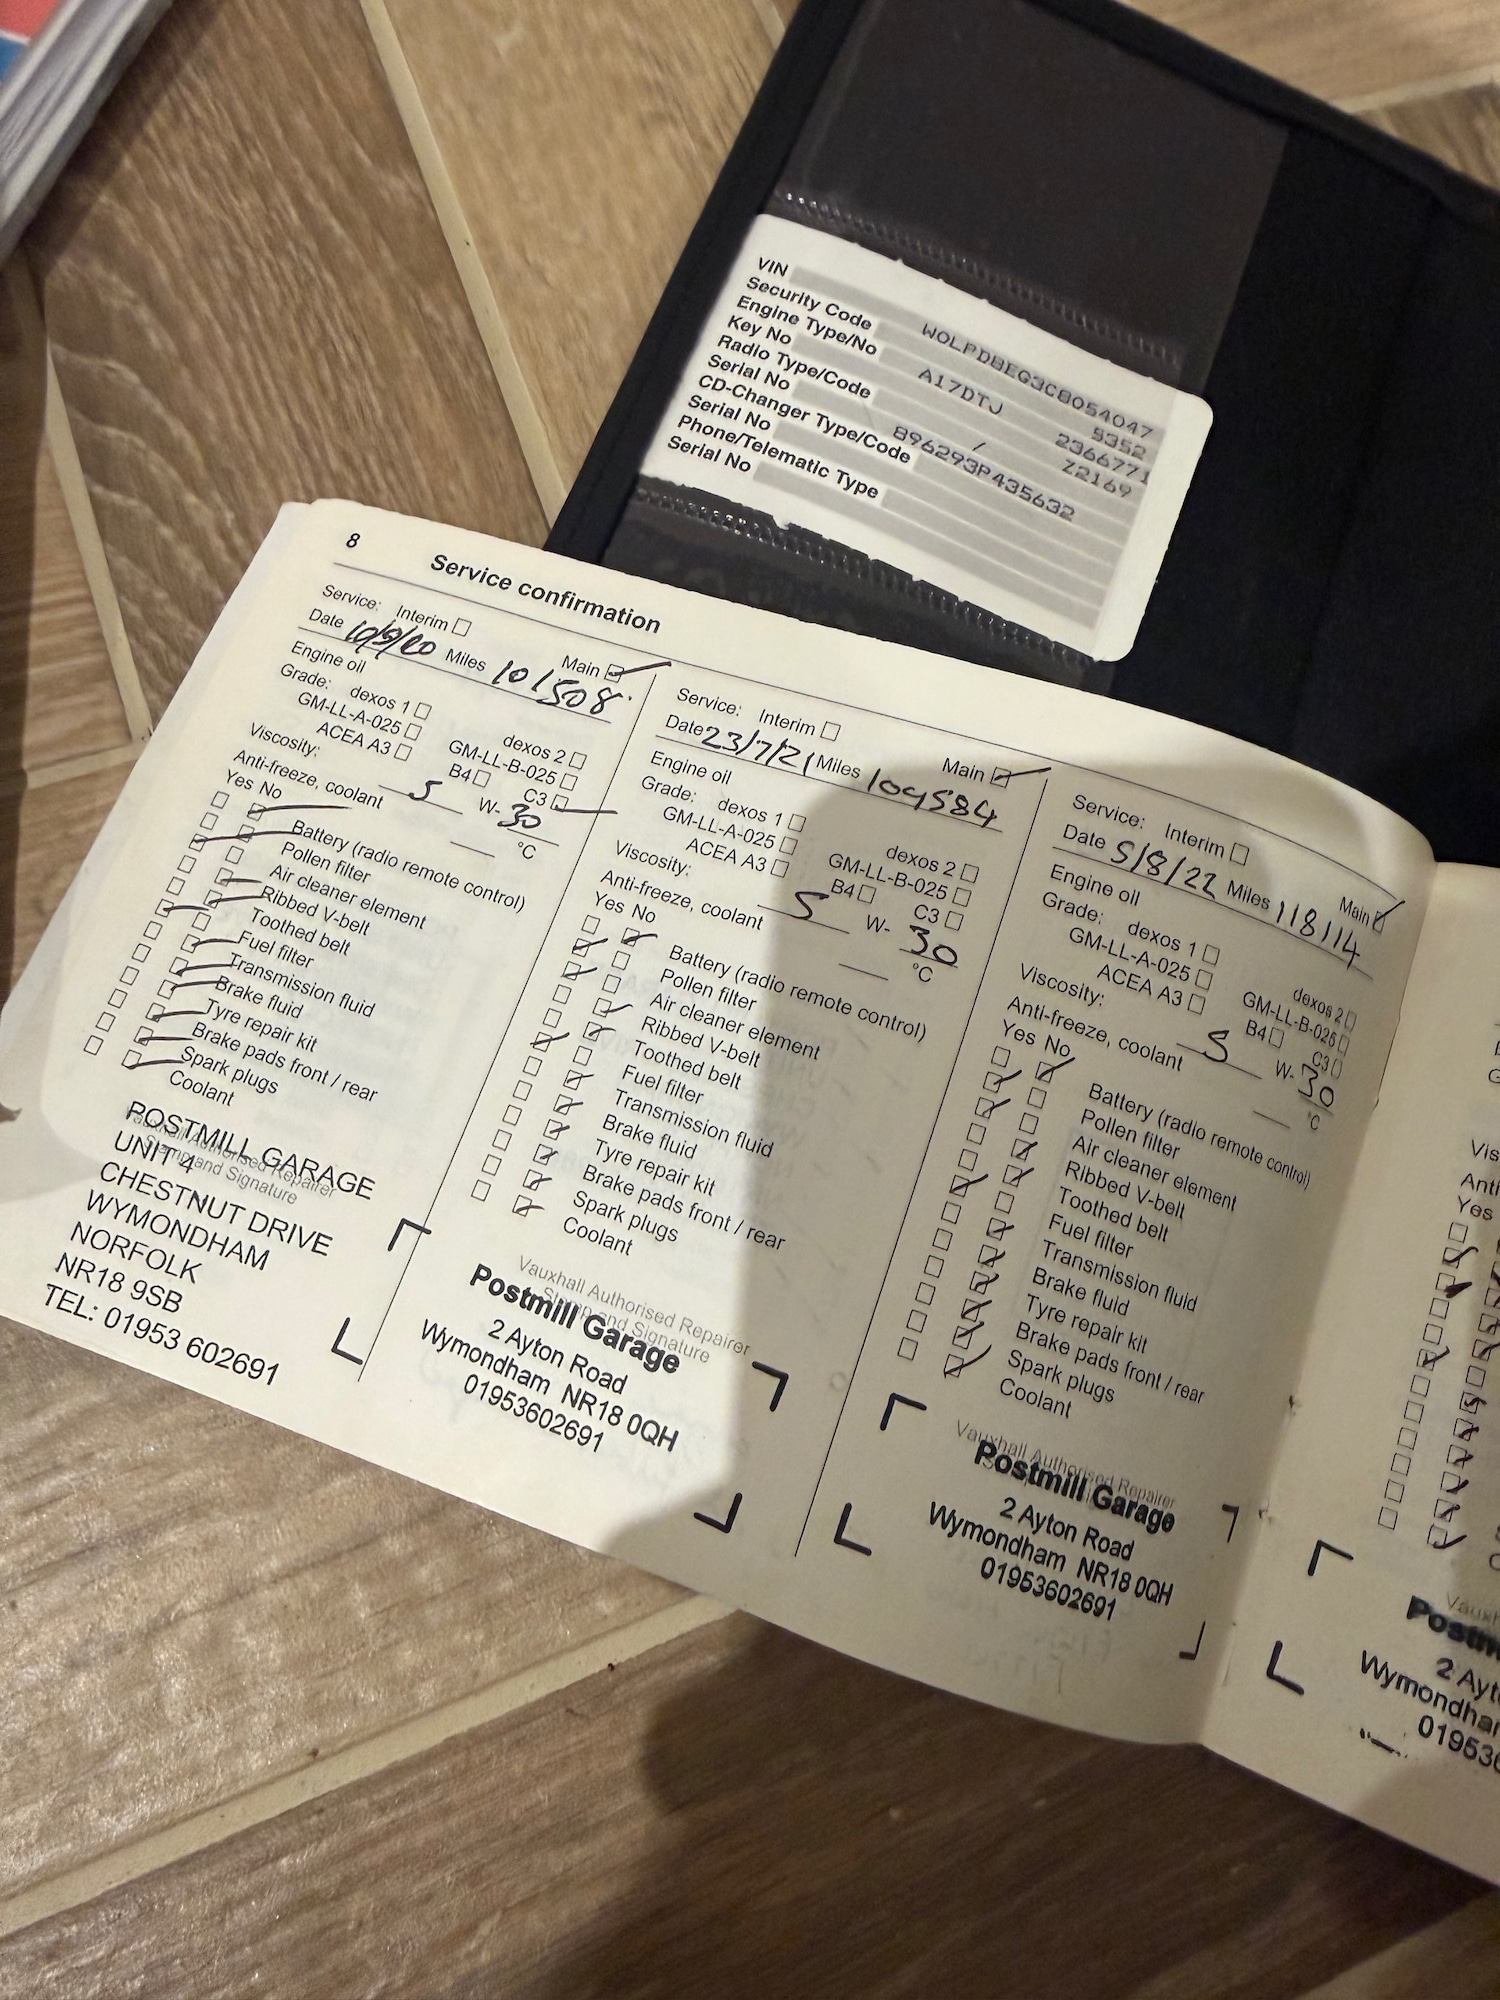 VIN WOLPDBEG3C8054047
Security Code 5352
Engine Type/No A17DTJ 2366771
Key No Z2169
Radio Type/Code /
Serial No 896293P435632
CD-Changer Type/Code
Serial No
Phone/Telematic Type
Serial No
8 Service confirmation
Service: Interim Main
Date 10/9/20 Miles 101508
Engine oil
Grade: dexos 1 dexos 2
GM-LL-A-025 GM-LL-B-025
ACEA A3 B4 C3
Viscosity: 5 W- 30
Anti-freeze, coolant °C
Yes No
Battery (radio remote control)
Pollen filter
Air cleaner element
Ribbed V-belt
Toothed belt
Fuel filter
Transmission fluid
Brake fluid
Tyre repair kit
Brake pads front / rear
Spark plugs
Coolant
Vauxhall Authorised Repairer
Stamp and Signature
POSTMILL GARAGE
UNIT 4
CHESTNUT DRIVE
WYMONDHAM
NORFOLK
NR18 9SB
TEL: 01953 602691
Service: Interim Main
Date 23/7/21 Miles 109584
Engine oil
Grade: dexos 1 dexos 2
GM-LL-A-025 GM-LL-B-025
ACEA A3 B4 C3
Viscosity: 5 W- 30
Anti-freeze, coolant °C
Yes No
Battery (radio remote control)
Pollen filter
Air cleaner element
Ribbed V-belt
Toothed belt
Fuel filter
Transmission fluid
Brake fluid
Tyre repair kit
Brake pads front / rear
Spark plugs
Coolant
Vauxhall Authorised Repairer
Stamp and Signature
Postmill Garage
2 Ayton Road
Wymondham NR18 0QH
01953602691
Service: Interim Main
Date 5/8/22 Miles 118114
Engine oil
Grade: dexos 1 dexos 2
GM-LL-A-025 GM-LL-B-025
ACEA A3 B4 C3
Viscosity: 5 W- 30
Anti-freeze, coolant °C
Yes No
Battery (radio remote control)
Pollen filter
Air cleaner element
Ribbed V-belt
Toothed belt
Fuel filter
Transmission fluid
Brake fluid
Tyre repair kit
Brake pads front / rear
Spark plugs
Coolant
Vauxhall Authorised Repairer
Postmill Garage
2 Ayton Road
Wymondham NR18 0QH
01953602691
Yes
2 Ayt
Wymondha
01953